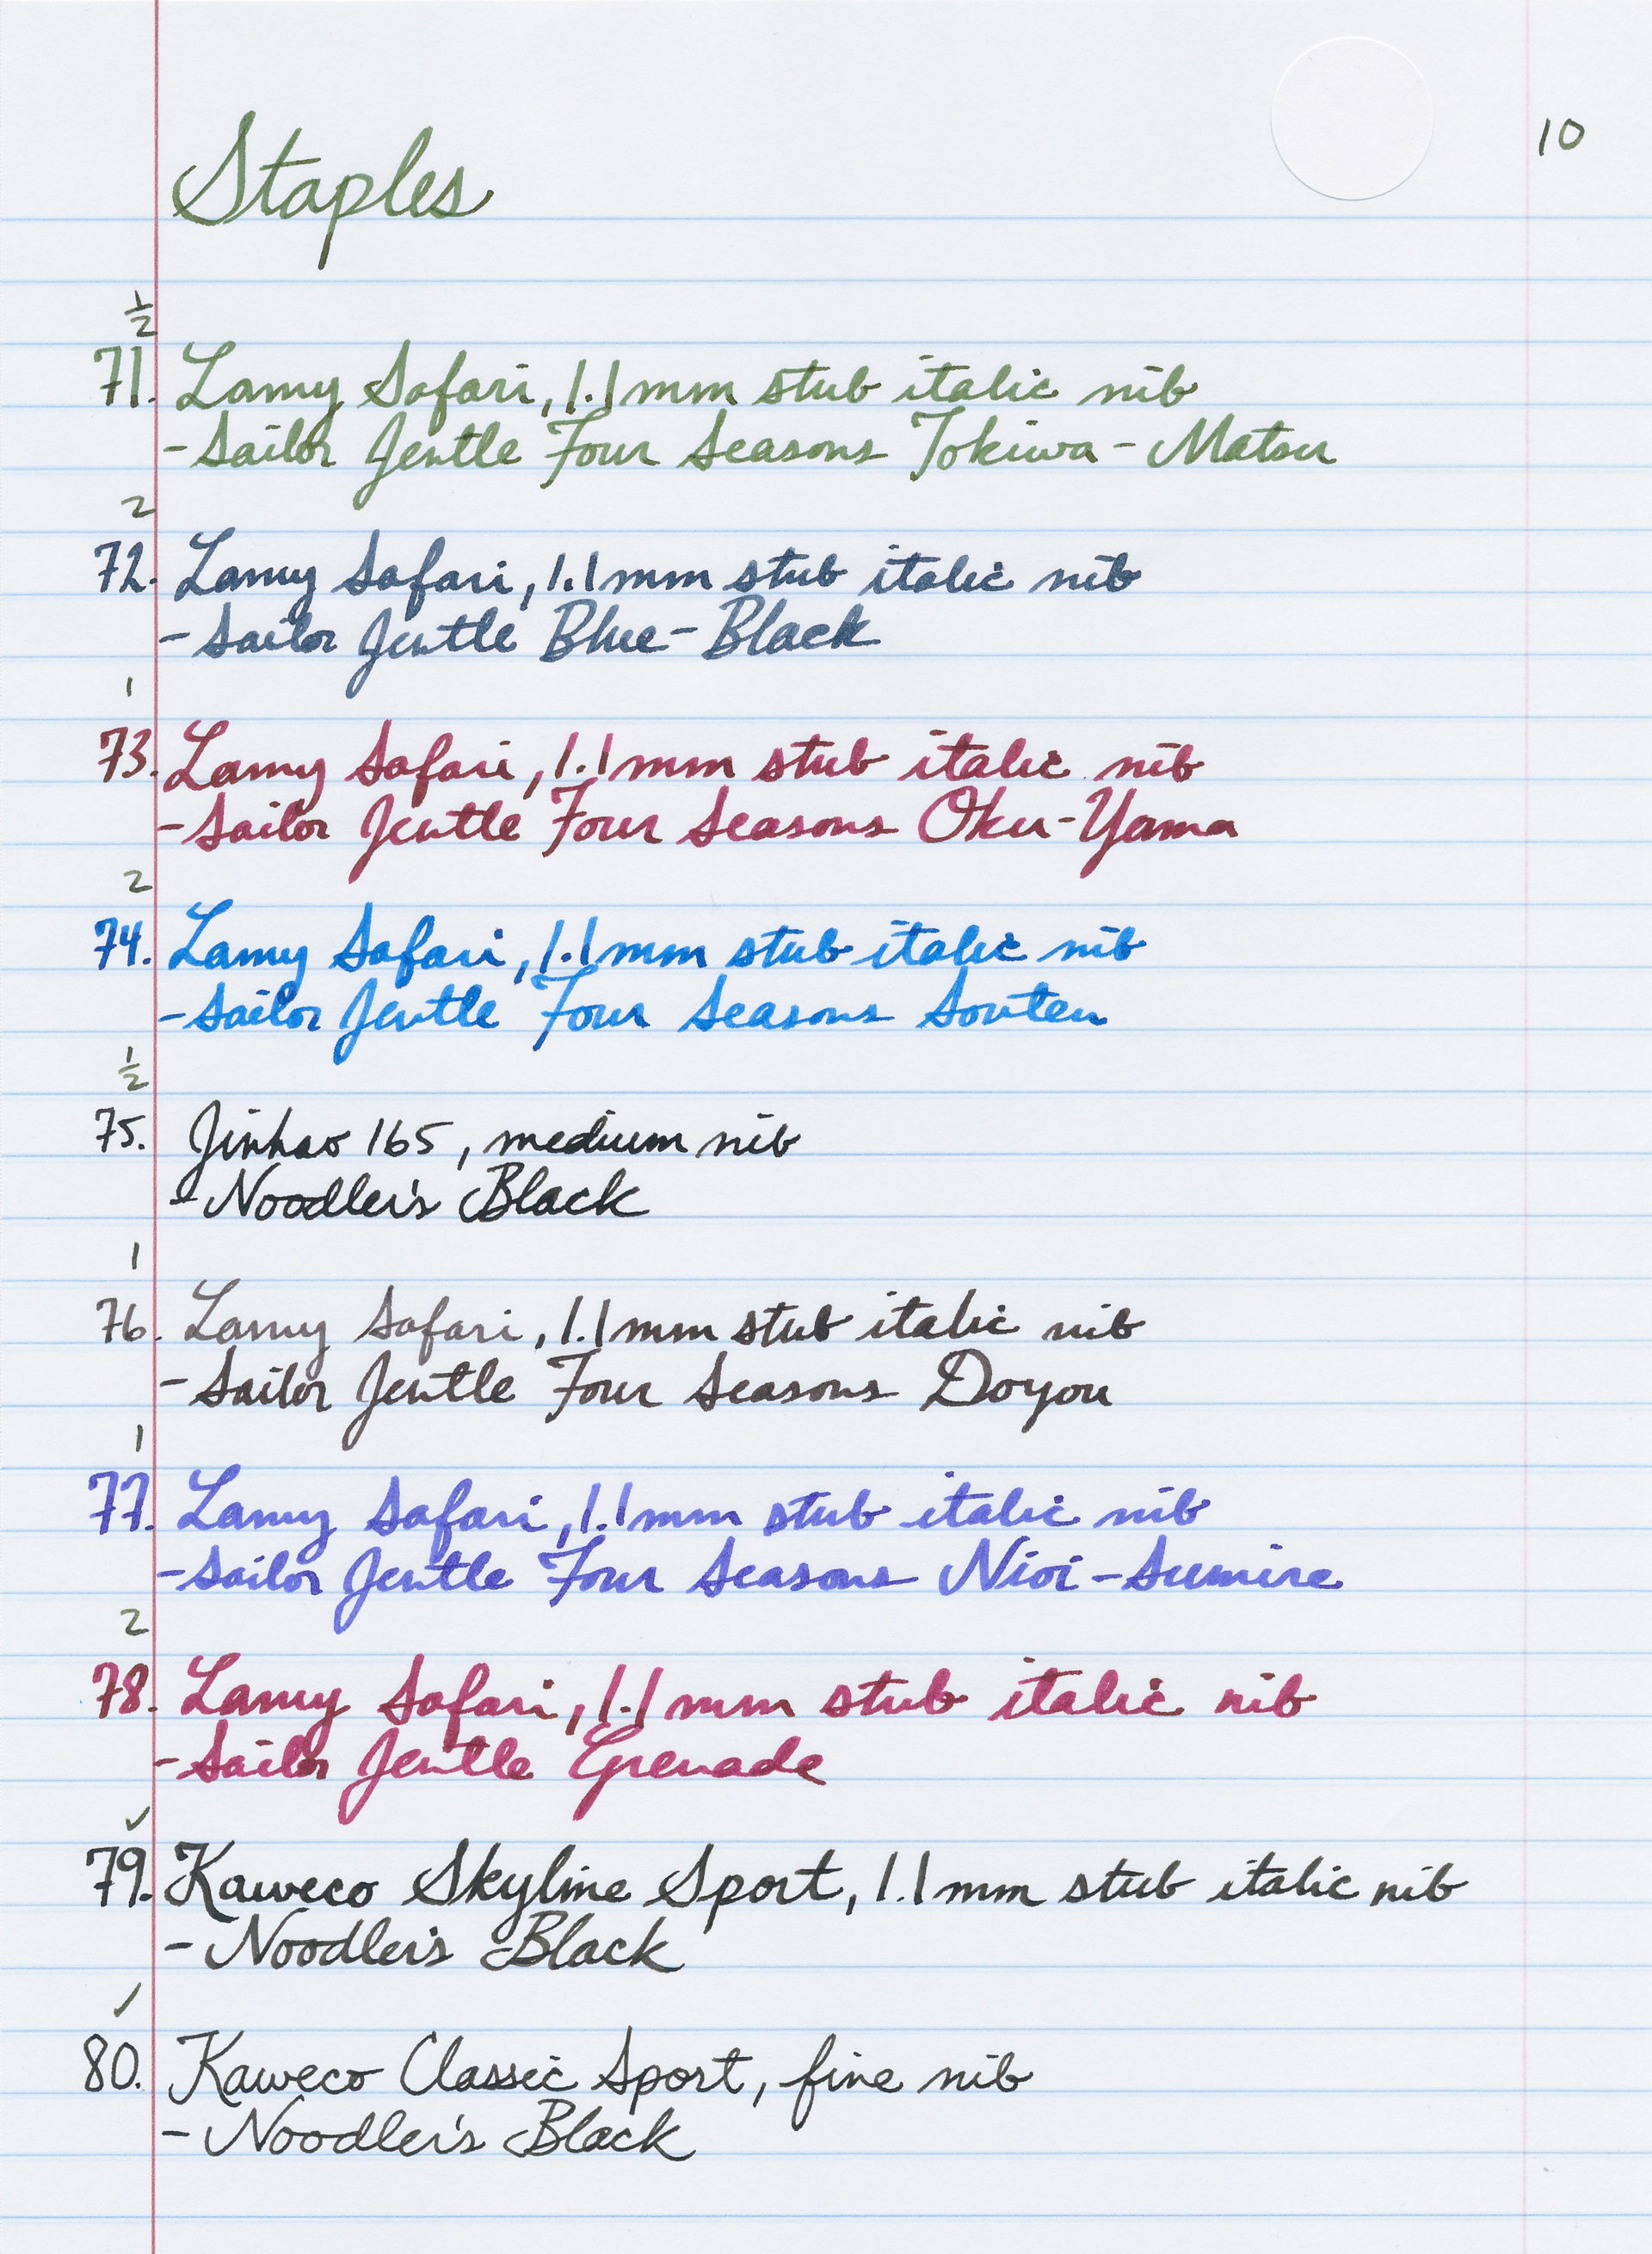 10
Staples
1/2
71. Lamy Safari, 1.1mm stub italic nib
- Sailor Jentle Four Seasons Tokiwa-Matsu
2
72. Lamy Safari, 1.1mm stub italic nib
- Sailor Jentle Blue-Black
1
73. Lamy Safari, 1.1mm stub italic nib
- Sailor Jentle Four Seasons Oku-Yama
2
74. Lamy Safari, 1.1mm stub italic nib
- Sailor Jentle Four Seasons Souten
1/2
75. Jinhao 165, medium nib
- Noodler's Black
1
76. Lamy Safari, 1.1mm stub italic nib
- Sailor Jentle Four Seasons Doyou
1
77. Lamy Safari, 1.1mm stub italic nib
- Sailor Jentle Four Seasons Nioi-Sumire
2
78. Lamy Safari, 1.1mm stub italic nib
- Sailor Jentle Grenade
✓
79. Kaweco Skyline Sport, 1.1mm stub italic nib
- Noodler's Black
✓
80. Kaweco Classic Sport, fine nib
- Noodler's Black